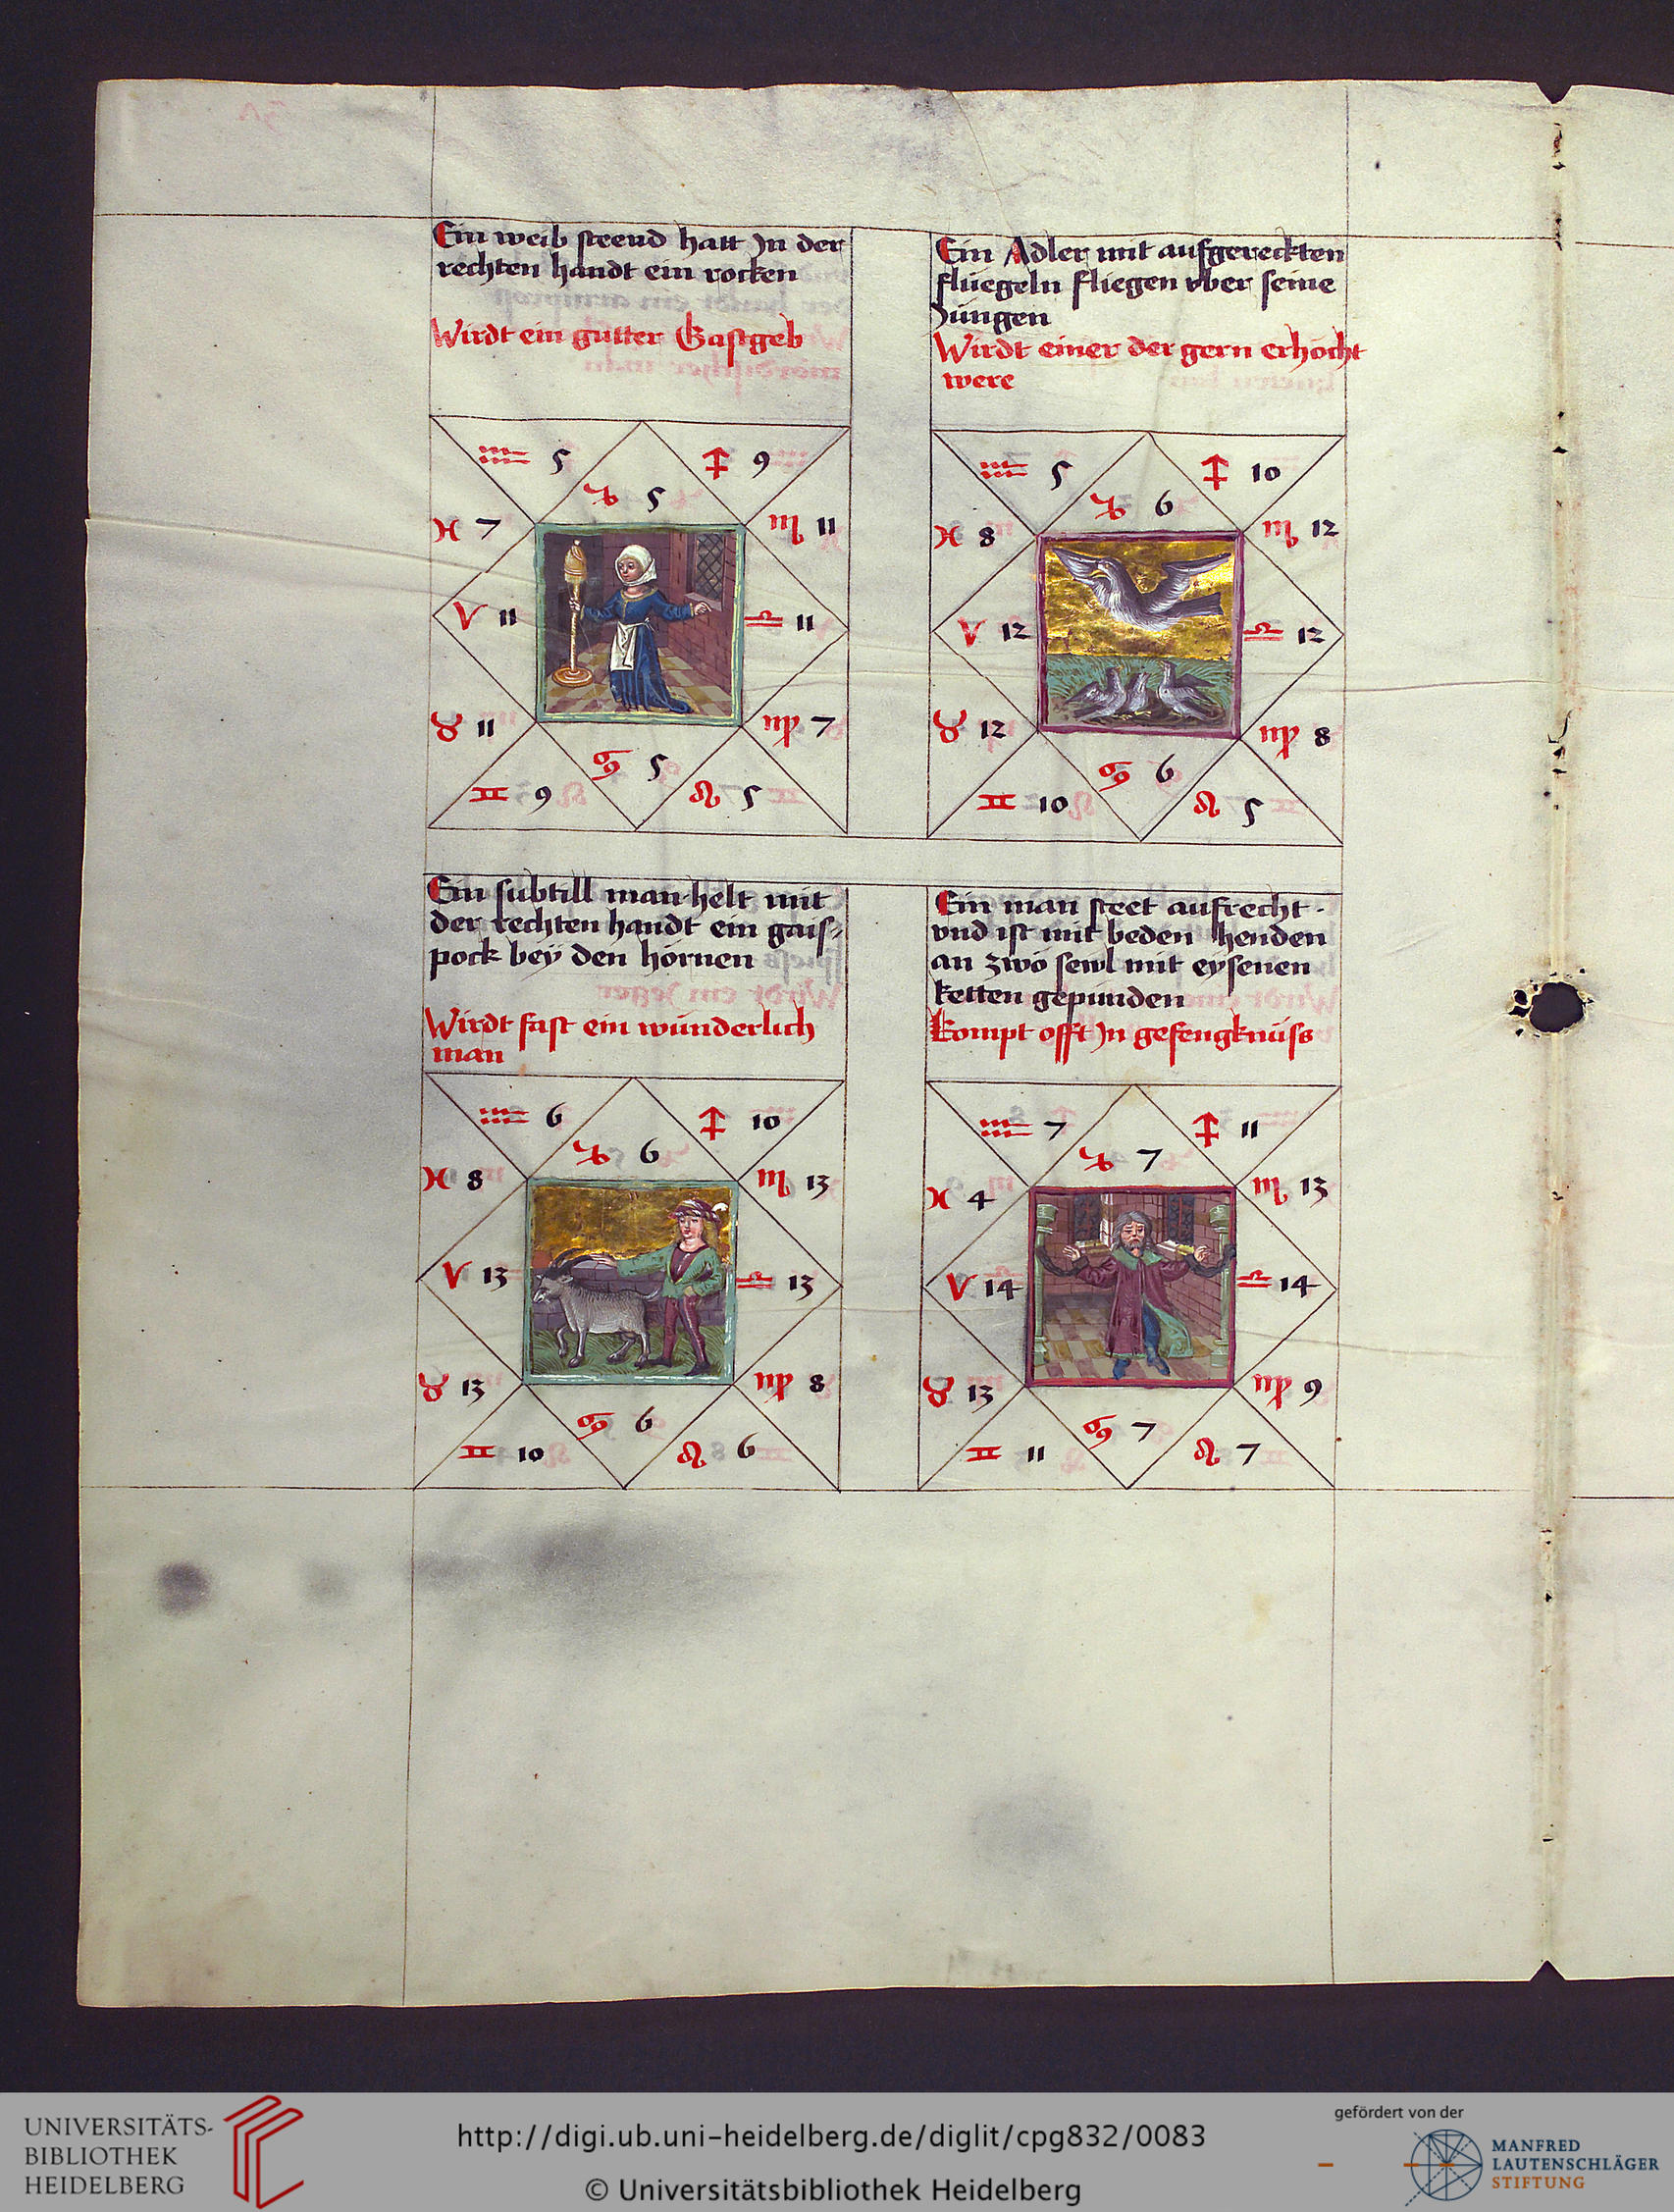 Ein weib steend hatt Jn der
rechten handt ein rocken
Wirdt ein gutter Gastgeb
♒ 5
♐ 9
♑ 5
♓ 7
♏ 11
♈ 11
♎ 11
♉ 11
♍ 7
♋ 5
♊ 9
♌ 5
Ein Adler mit aufgereckten
fluegeln fliegen vber seine
Jungen
Wirdt einer der gern erhöcht
were
♒ 5
♐ 10
♑ 6
♓ 8
♏ 12
♈ 12
♎ 12
♉ 12
♍ 8
♋ 6
♊ 10
♌ 5
Ein subtill man helt mit
der rechten handt ein gais-
pock bey den hornen
Wirdt fast ein wunderlich
man
♒ 6
♐ 10
♑ 6
♓ 8
♏ 13
♈ 13
♎ 13
♉ 13
♍ 8
♋ 6
♊ 10
♌ 6
Ein man steet aufrecht ·
vnd ist mit beden henden
an zwo sewl mit eysenen
ketten gepunden
kompt offt Jn gefengknuss
♒ 7
♐ 11
♑ 7
♓ 4
♏ 13
♈ 14
♎ 14
♉ 13
♍ 9
♋ 7
♊ 11
♌ 7
UNIVERSITÄTS-
BIBLIOTHEK
HEIDELBERG
http://digi.ub.uni-heidelberg.de/diglit/cpg832/0083
© Universitätsbibliothek Heidelberg
gefördert von der
MANFRED
LAUTENSCHLÄGER
STIFTUNG